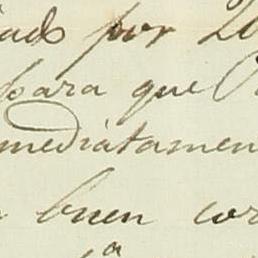 iado por 20
para que
mediatamen
buen cor
a